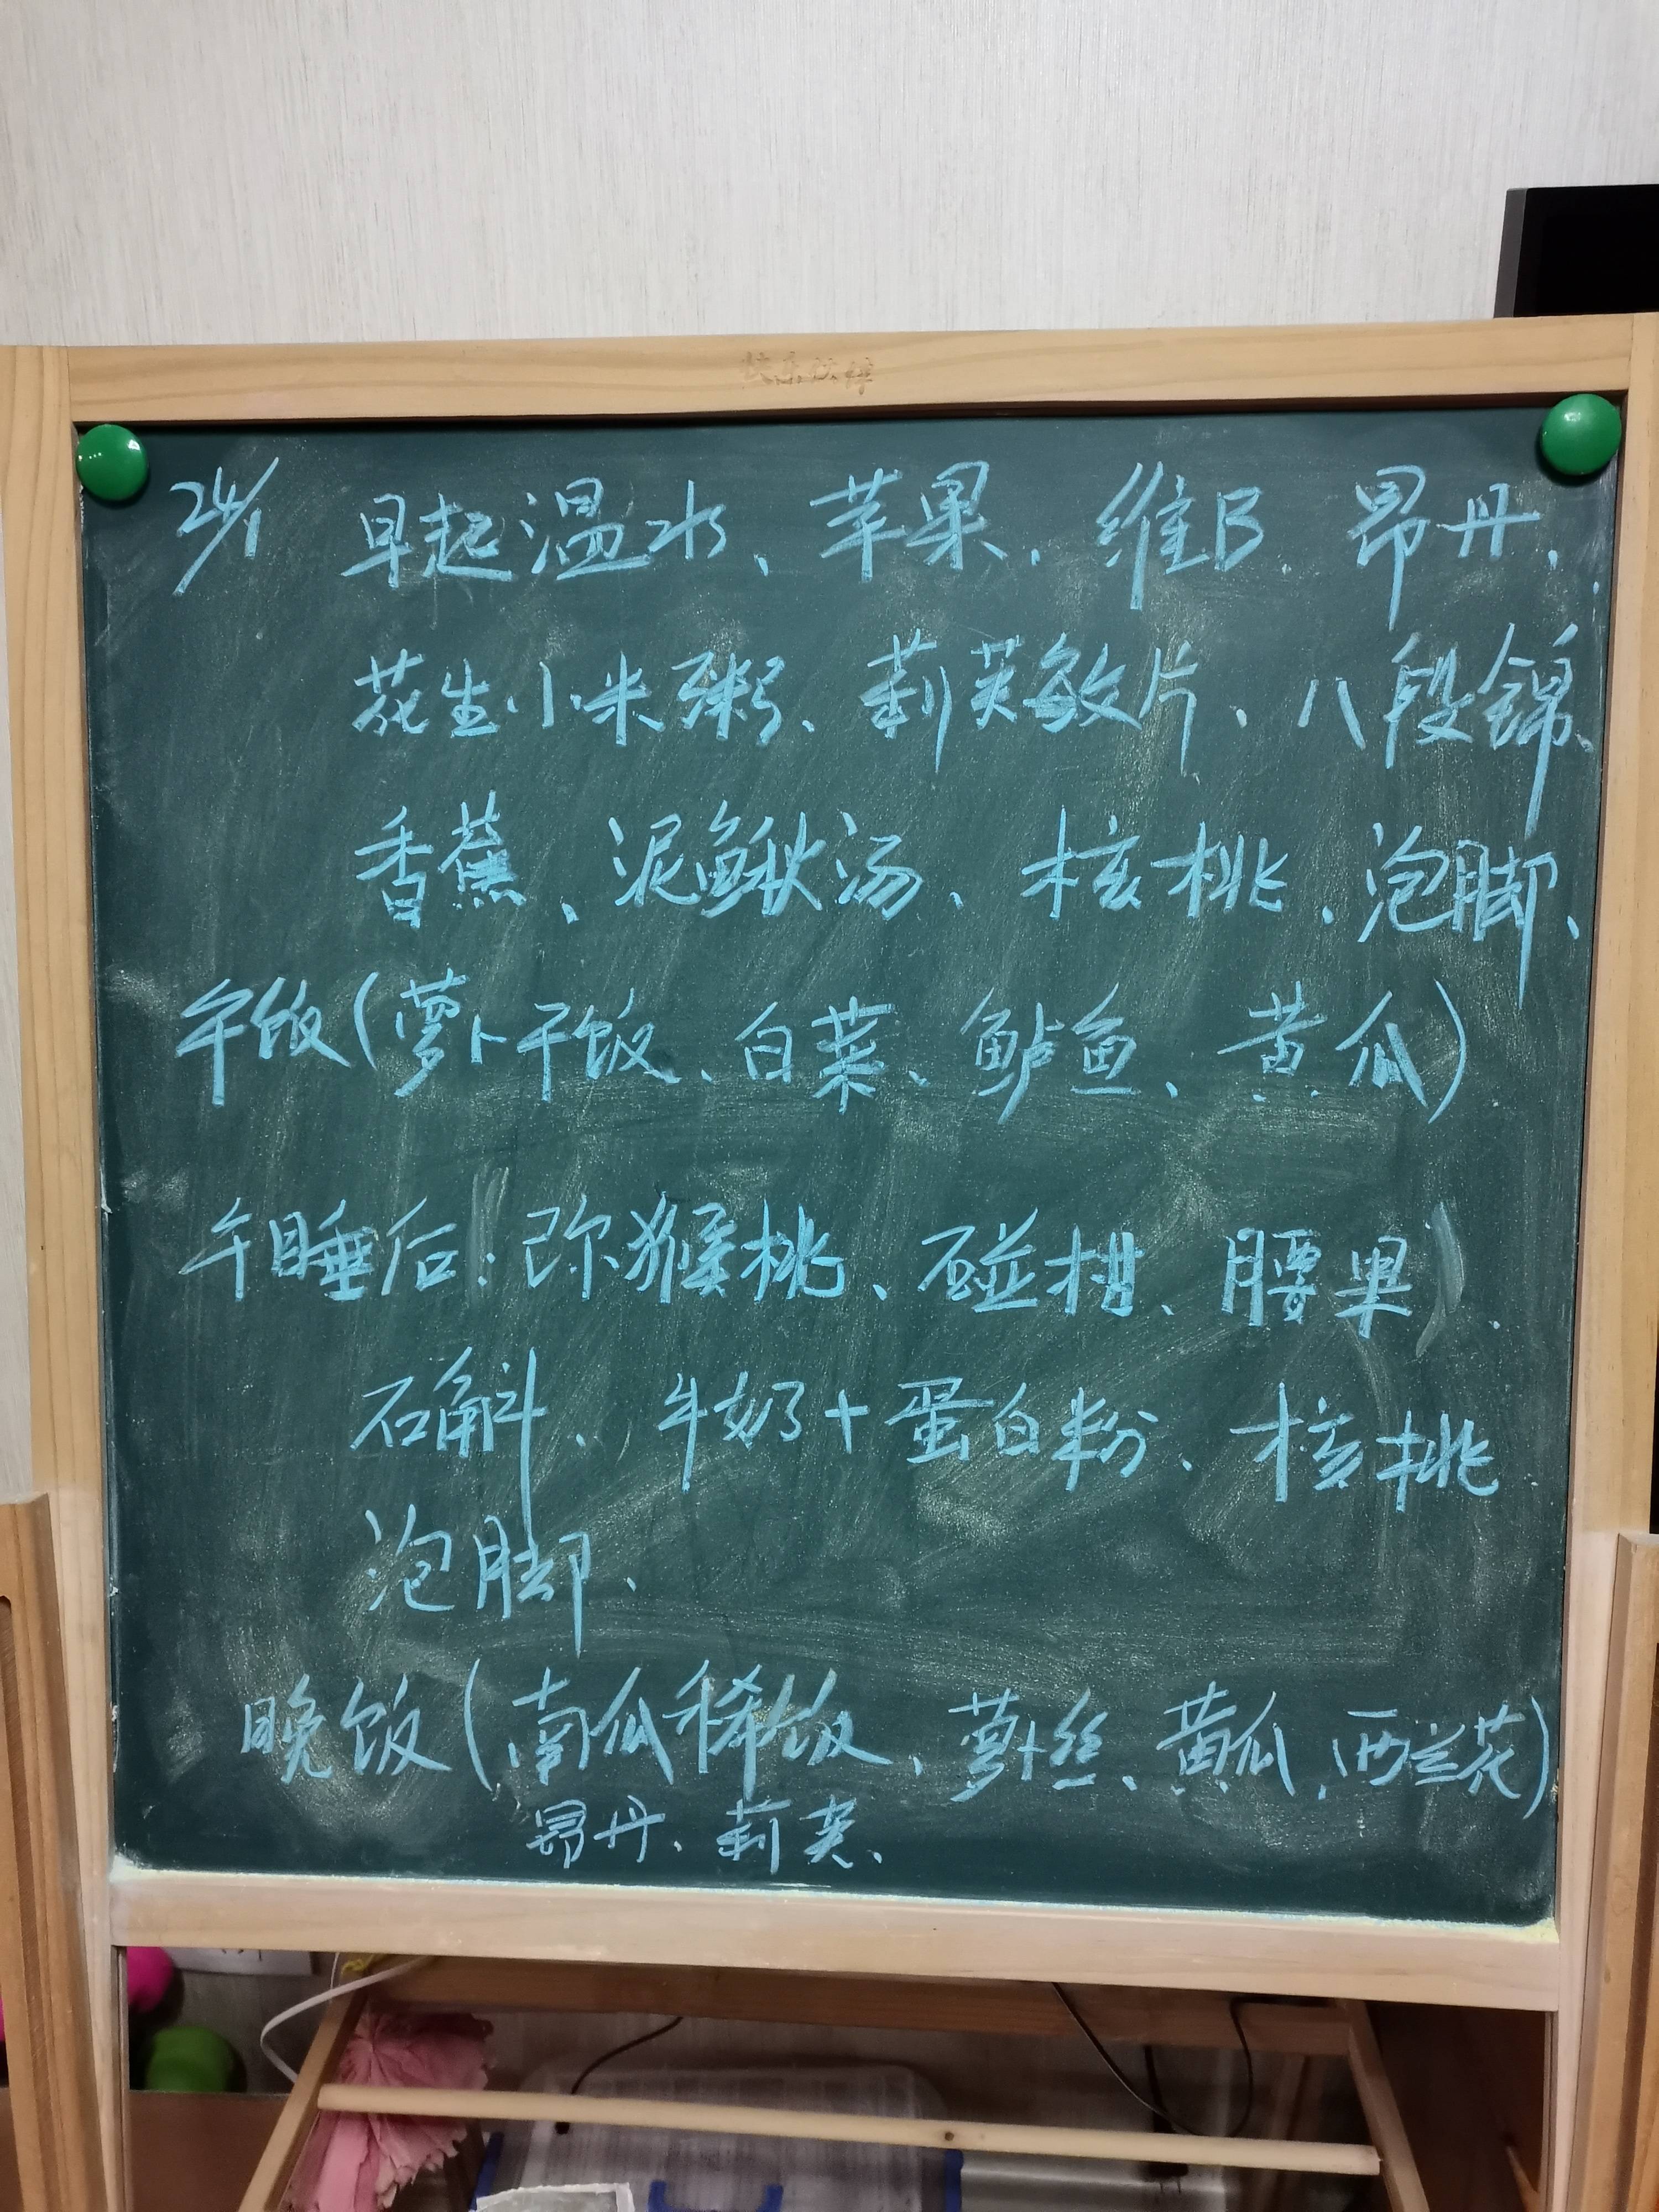 快乐伙伴
24/1 早起温水、苹果、维B、昂丹、
花生小米粥、莉芙敏片、八段锦、
香蕉、泥鳅汤、核桃、泡脚、
午饭(萝卜干饭、白菜、鲈鱼、黄瓜)
午睡后:弥猴桃、碰柑、腰果、
石斛、牛奶+蛋白粉、核桃
泡脚、
晚饭(南瓜稀饭、萝卜丝、黄瓜、西兰花)
昂丹、莉芙、